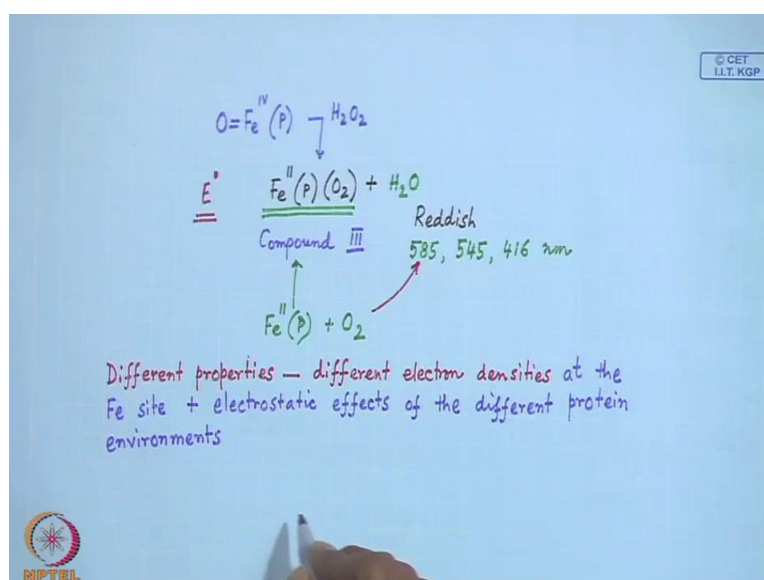 © CET
I.I.T. KGP
O=Fe^IV (P) H2O2
E° Fe^II (P) (O2) + H2O
Reddish
Compound III 585, 545, 416 nm
Fe^II (P) + O2
Different properties — different electron densities at the
Fe site + electrostatic effects of the different protein
environments
NPTEL